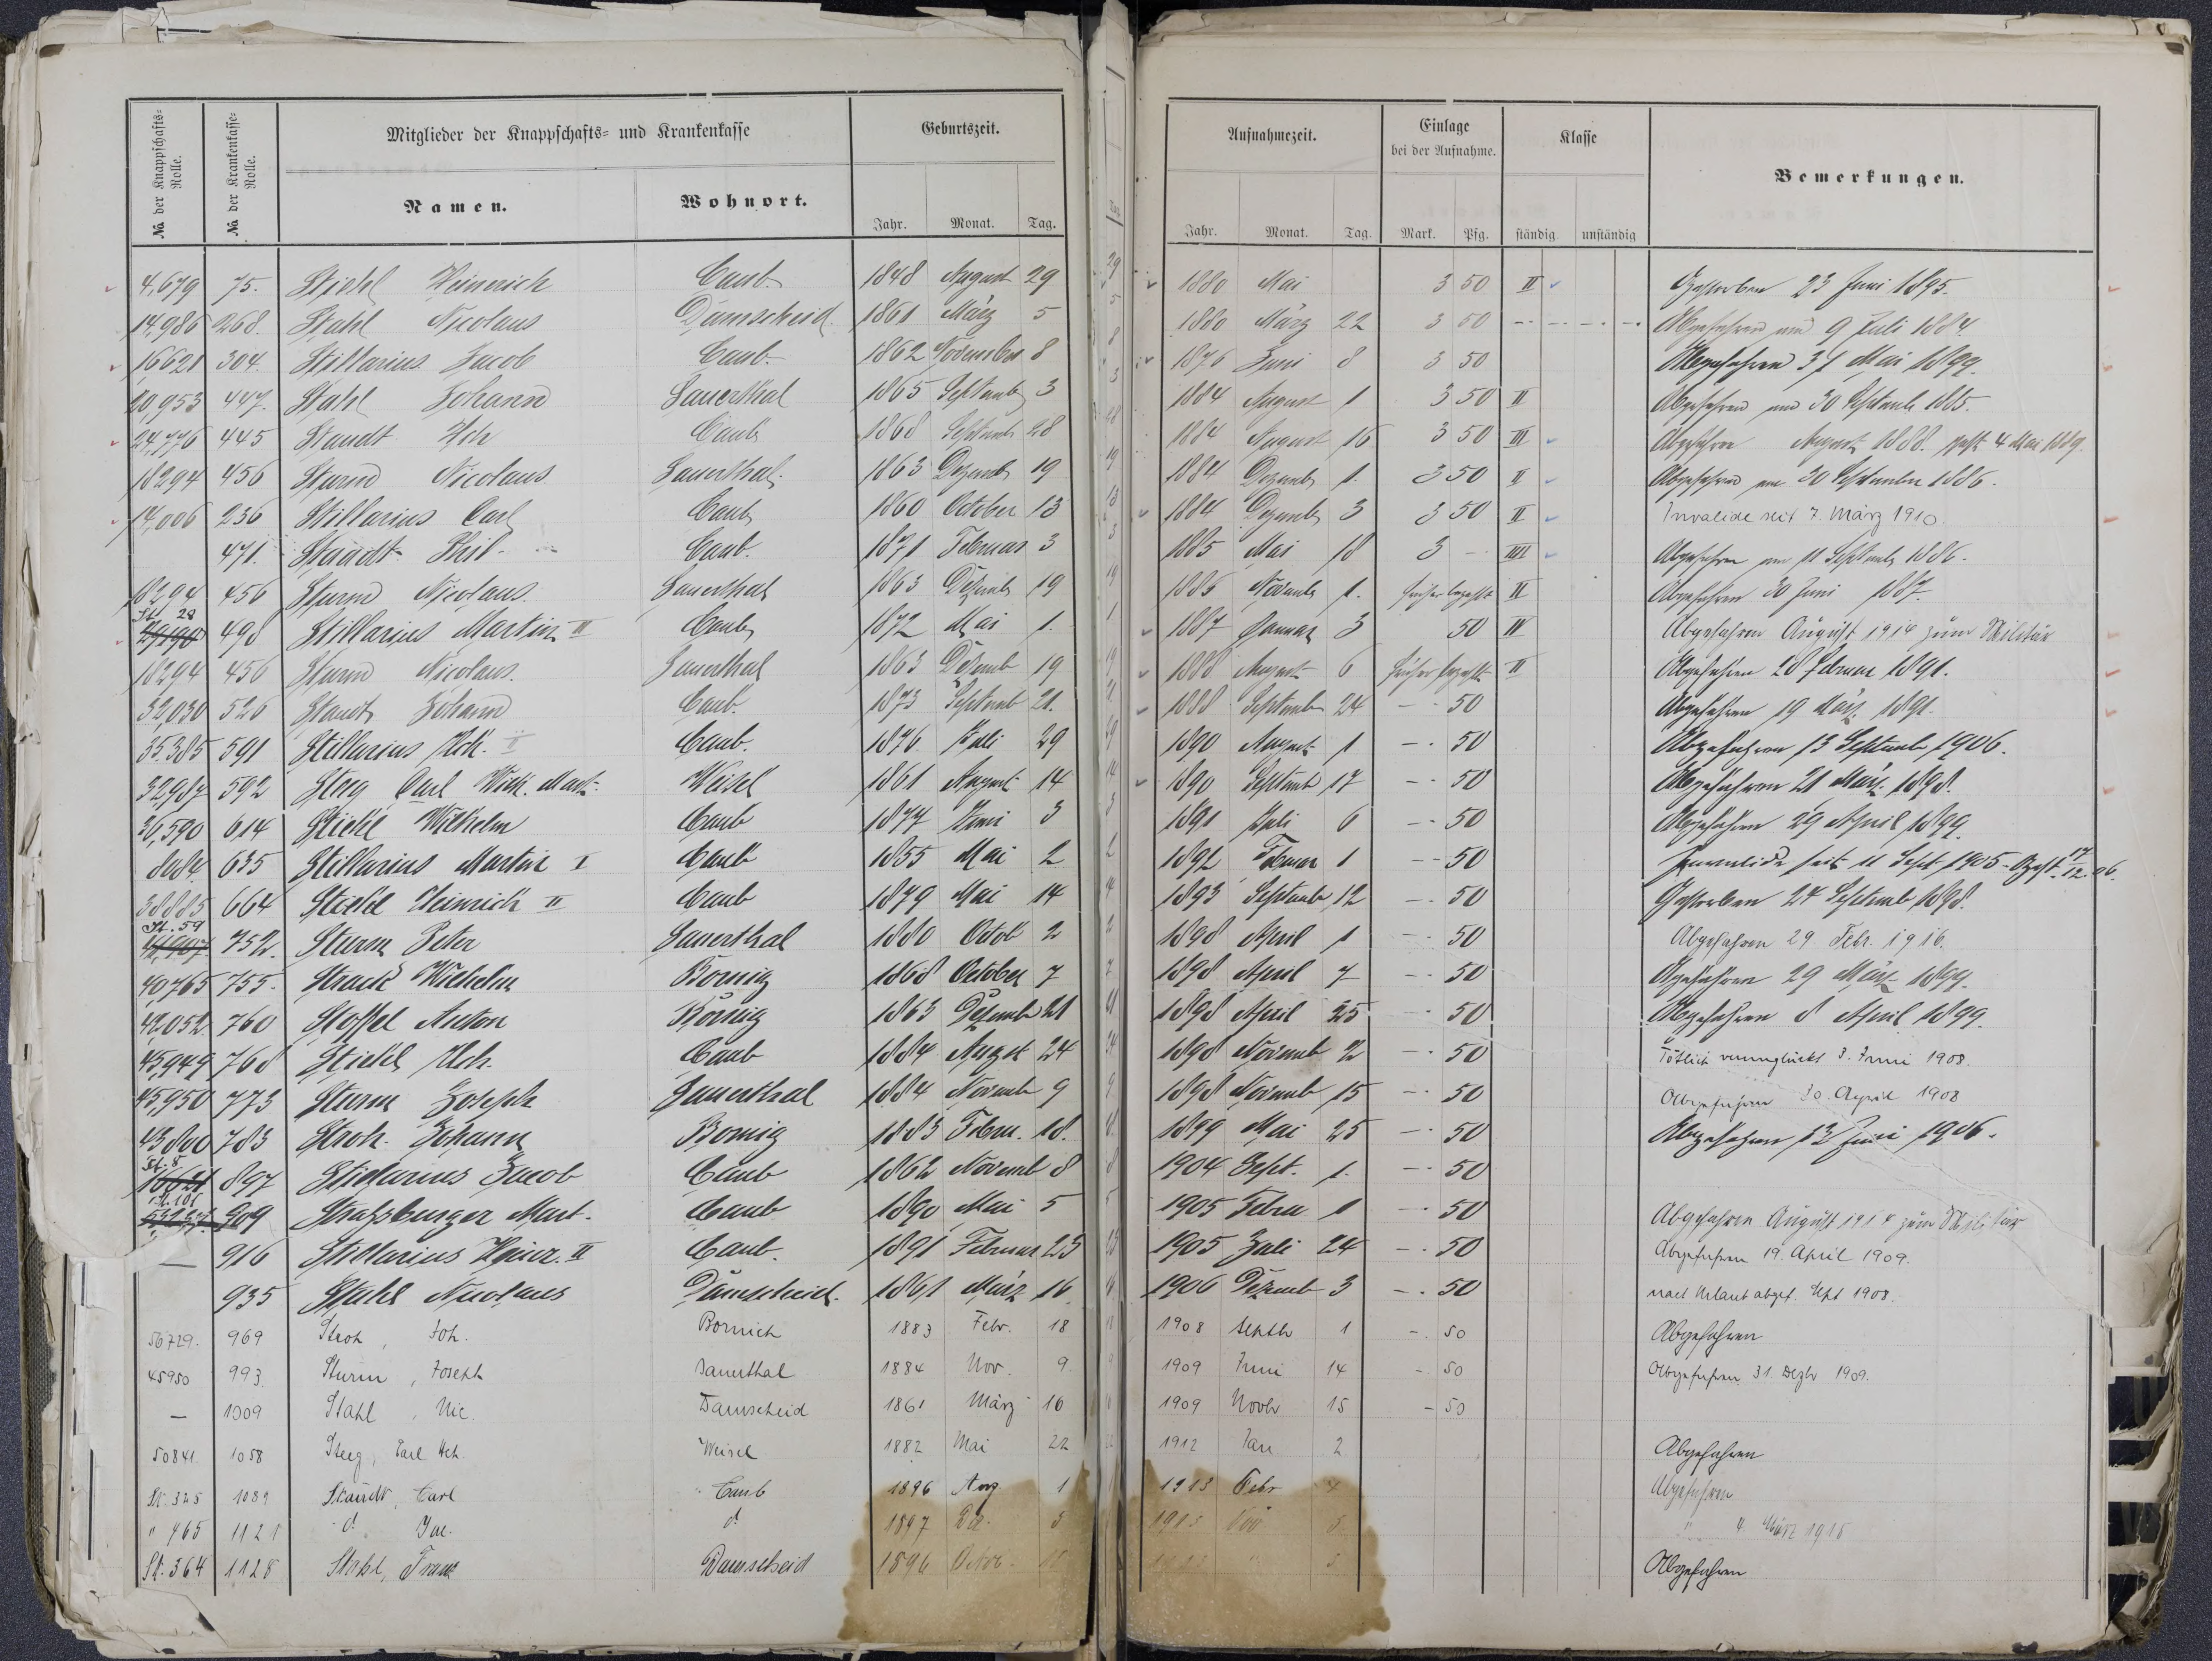 № der Knappschafts-Rolle.
№ der Krankenkasse-Rolle.
Mitglieder der Knappschafts- und Krankenkasse
Geburtszeit.
Namen.
Wohnort.
Jahr. Monat. Tag.
Aufnahmezeit.
Einlage bei der Aufnahme.
Klasse
Bemerkungen.
Jahr. Monat. Tag. Mark. Pfg. ständig unständig
4,679 75. Stiehl Heinerich Caub. 1848 August 29 1880 Mai 3 50 II Gestorben 23 Juni 1895.
14,986 268. Stahl Nicolaus Damscheid. 1861 März 5 1880 März 22 3 50 Abgefahren am 9 Juli 1884
16621 304. Stillarius Jacob Caub. 1862 November 8 1876 Juni 8 3 50 Abgefahren 31 Mai 1899.
20,953 447. Stahl Johann Sauerthal 1865 Septemb 3 1884 August 1 3 50 II Abgefahren am 30 Septemb 1885.
24,776 445 Staudt Hch Caub 1868 Septemb 28 1884 August 16 3 50 III Abgefahren August 1888. gest 4 Mai 1889.
18294 456 Sturm Nicolaus Sauerthal. 1863 Dezemb 19 1884 Dezemb 1. 3 50 II Abgefahren am 30 September 1886.
14,006 236 Stillarius Carl Caub 1860 October 13 1884 Dezemb 3 3 50 II Invalide seit 7. März 1910.
471. Staudt Phil. Caub. 1871 Februar 3 1885 Mai 18 3 - IIII Abgefahren am 11 Septemb 1886.
18294 456 Sturm Nicolaus. Sauerthal 1863 Dezemb 19 1886 Novemb 1. früher bezahlt II Abgefahren 30 Juni 1887.
St. 28
29190 498 Stillarius Martin II Caub 1872 Mai 1. 1887 Januar 3 50 IV Abgefahren August 1914 zum Militär
18294 456 Sturm Nicolaus. Sauerthal 1863 Dezemb 19 1888 August 6 früher bezahlt II Abgefahren 28 Februar 1891.
32,030 526 Staudt Johann Caub. 1873 Septemb 21. 1888 September 24 - 50 Abgefahren 19 März 1891.
35385 591 Stillarius Hch. II Caub. 1876 Juli 29 1890 August 1 - 50 Abgefahren 13 Septemb 1906.
32,987 592 Steg Carl Wilh. Mart. Weisel 1861 August 14 1890 Septemb 17 - 50 Abgefahren 21 März 1898.
36,590 614 Stiehl Wilhelm Caub 1877 Juni 3 1891 Juli 6 - 50 Abgefahren 29 April 1899.
8084 635 Stillarius Martin I Caub 1855 Mai 2 1892 Februar 1 - 50 Invalide seit 11 Sept 1905 - Gest. 17/12. 06.
38885 664 Stiehl Heinrich II Caub 1879 Mai 14 1893 Septemb 12 - 50 Gestorben 24 Septemb 1898.
St. 59
44,907 752. Sturm Peter Sauerthal 1880 Octob 2 1898 April 1 - 50 Abgefahren 29 Febr. 1916.
40,765 755. Strack Wilhelm Bornig 1868 October 7 1898 April 7 - 50 Abgefahren 29 März 1899.
42,052 760 Stoffel Anton Bornig 1863 Dezemb 21 1898 April 25 - 50 Abgefahren 8 April 1899.
45,949 768 Stiehl Hch. Caub 1884 August 24 1898 Novemb 2 - 50 Tötlich verunglückt 3. Juni 1908.
45,950 773 Sturm Joseph Sauerthal 1884 Novemb 9 1898 Novemb 15 - 50 Abgefahren 30. April 1908
43800 783 Stroh Johann Bornig 1883 Febru. 18. 1899 Mai 25 - 50 Abgefahren 12 Juni 1906.
St. 8
16621 897 Stillarius Jacob Caub 1862 Novemb 8 1904 Sept. 1. - 50
St. 101
909 Strassburger Mart. Caub 1890 Mai 5 1905 Febru 1 - 50 Abgefahren August 1914 zum Militär
— 916 Stillarius Heinr. II Caub. 1891 Februar 23 1905 Juli 24 - 50 Abgefahren 19. April 1909.
935 Stahl Nicolaus Damscheid. 1861 März 16. 1906 Dezemb 3 - 50 nach Urlaub abgef. Sept 1908.
56729. 969 Stroh, Joh. Bornich 1883 Febr. 18 1908 Septb 1 - 50 Abgefahren
45950 993. Sturm, Joseph Sauerthal 1884 Nov. 9. 1909 Juni 14 - 50 Abgefahren 31. Dezbr 1909.
— 1009 Stahl, Nic. Damscheid 1861 März 16 1909 Novbr 15 - 50
50841. 1058 Steeg, Carl Hch. Weisel 1882 Mai 22 1912 Jan 2 Abgefahren
St. 325 1089 Staudt, Carl Caub 1896 Aug 1 1913 Febr Abgefahren
" 465 1121 do Jac. do 1897 Dez. 5 1913 Nov 3. " 4. März 1918
St. 364 1128 Stahl, Franz Damscheid 1896 Octob. Abgefahren